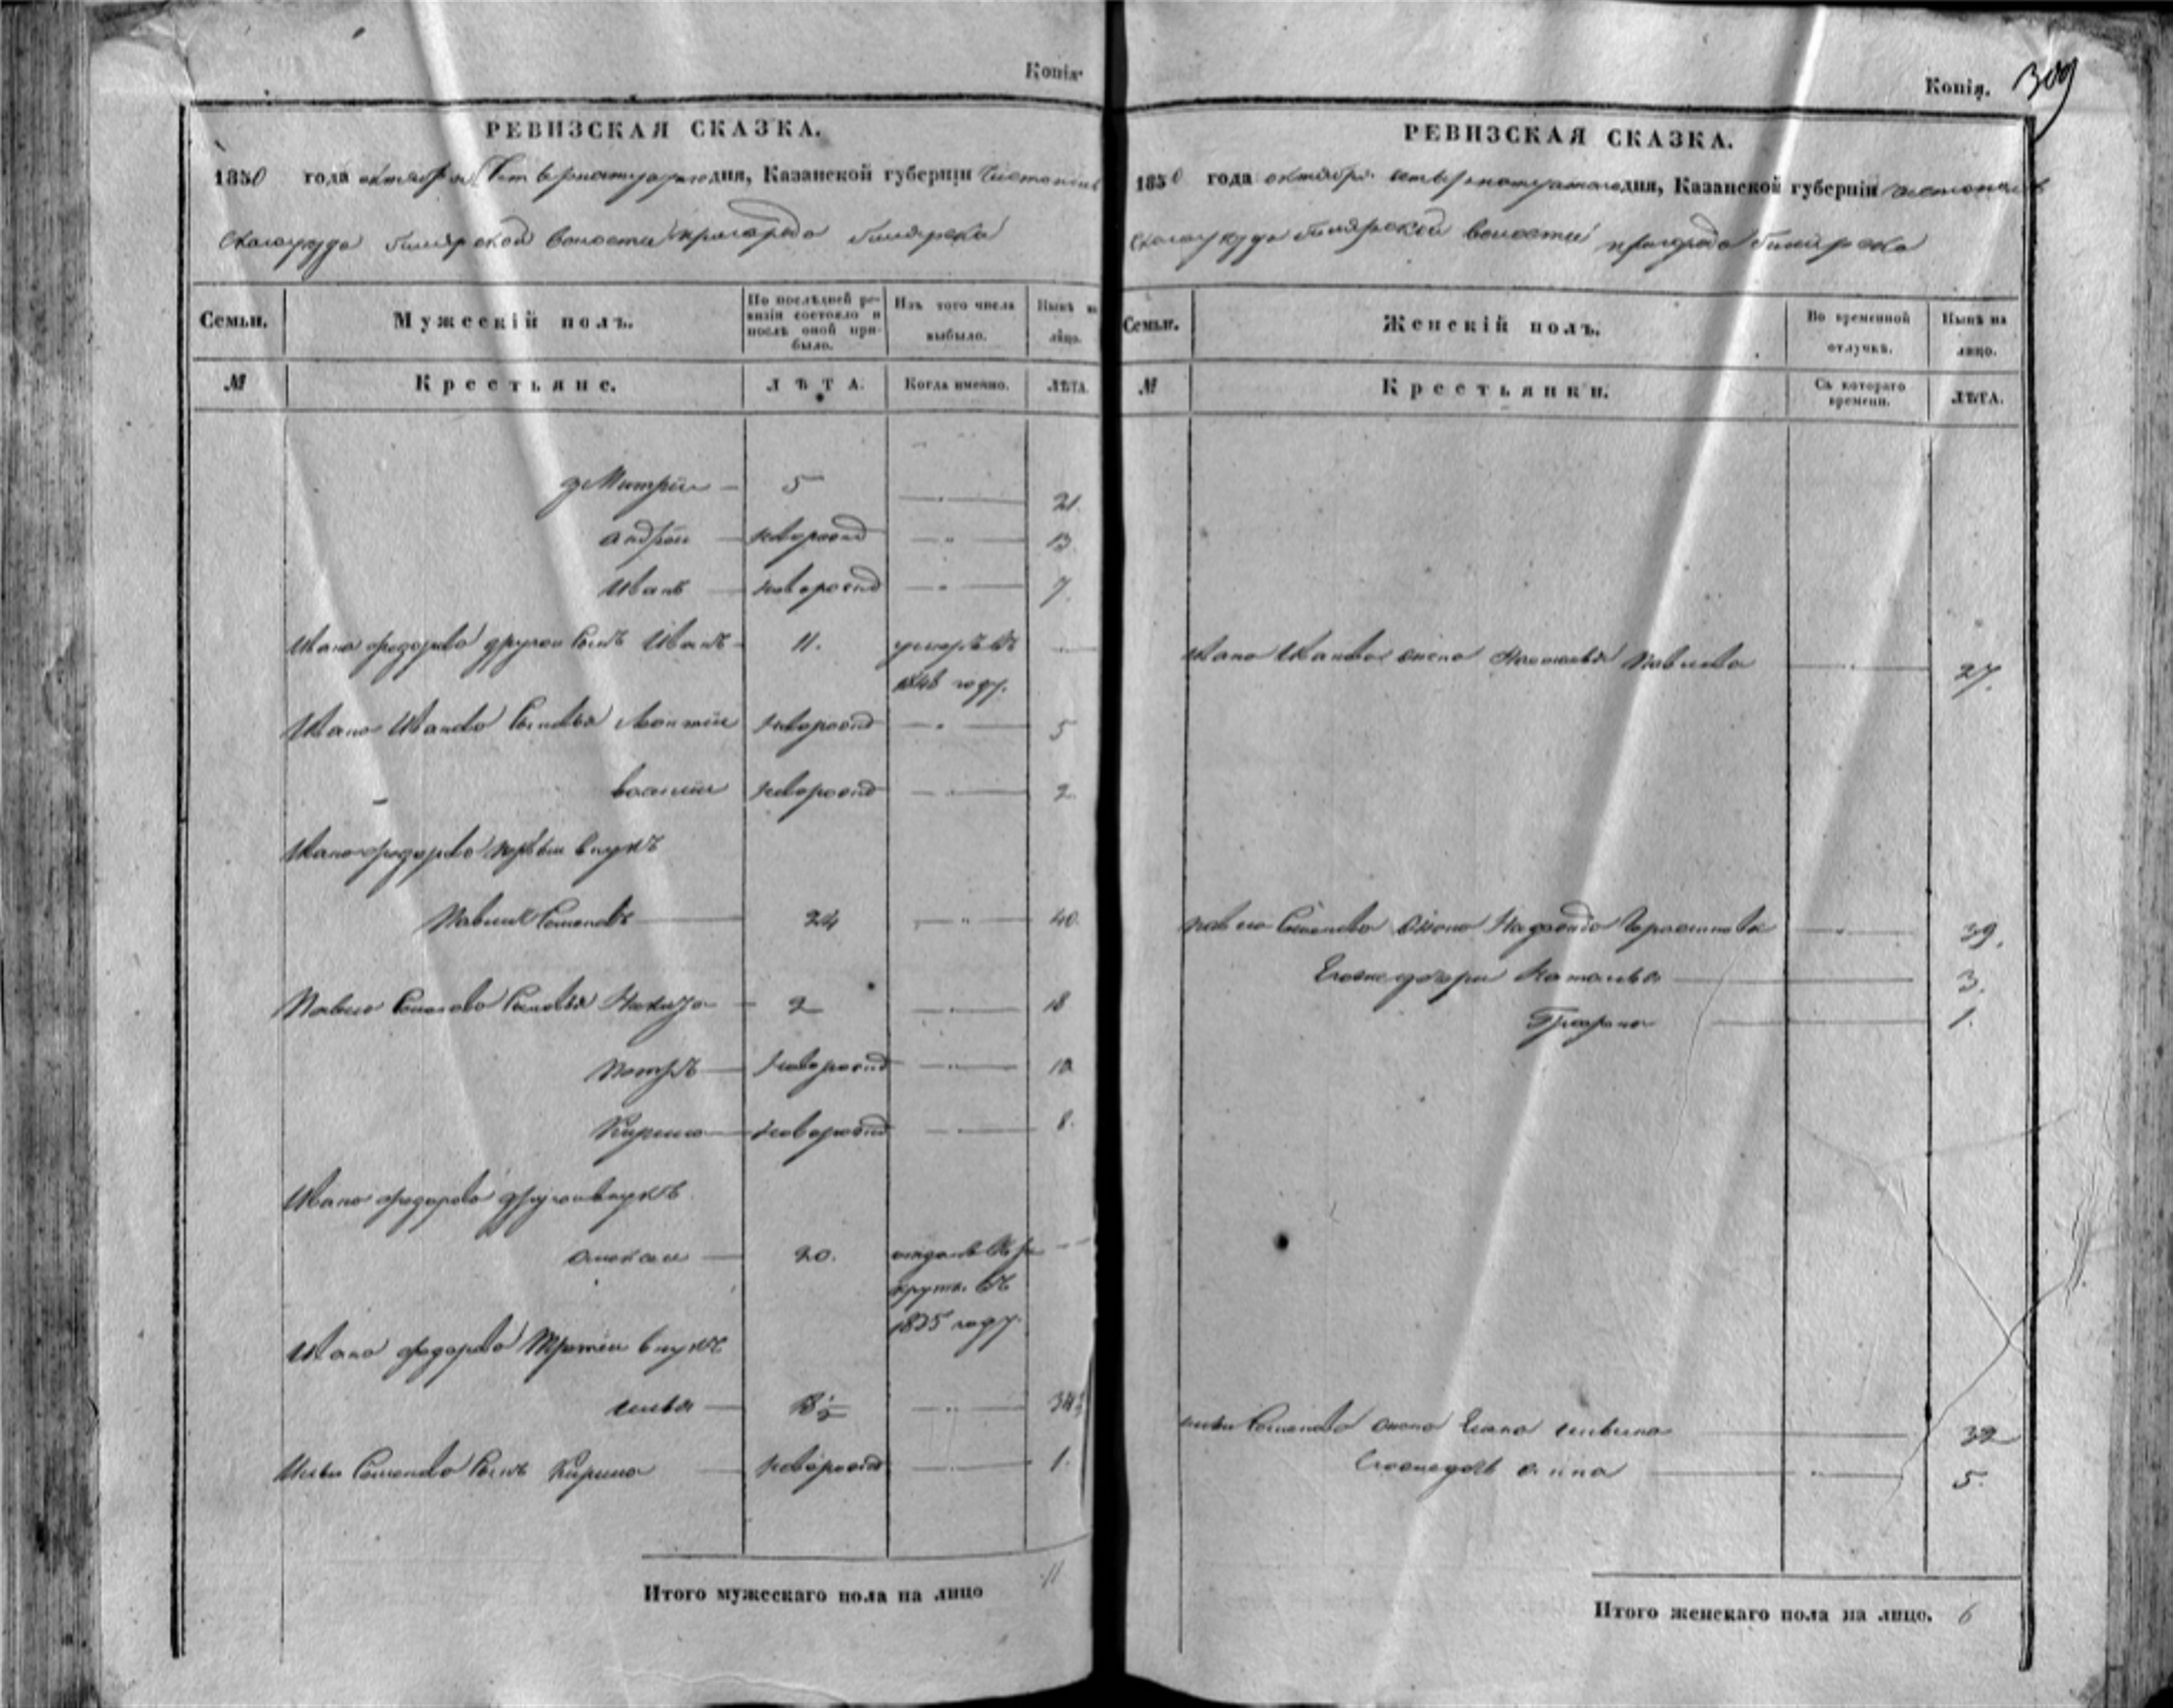 Копія
РЕВИЗСКАЯ СКАЗКА.
1850 года октября Четвертонатцатого дня, Казанской губерніи Чистополь
скаго уѣзда билярской волости пригорода билярска
Семьи.
Мужескій полъ.
По послѣдней ре-
визіи состояло и
послѣ оной при-
было.
Изъ того числа
выбыло.
Нынѣ на
лицо.
№
Крестьяне.
ЛѢТА.
Когда именно.
ЛѢТА.
дмитріи 5 21.
андреи новорожд 13
иванъ новорожд 7.
Ивана федорова другои сынъ Иванъ 11. умеръ въ
1848 году.
Ивана Иванова сыновья Леонтіи новорожд 5
василіи новорожд 2.
Ивана федорова первыи внукъ
Павилъ Семеновъ 24 40
Павила Семенова сыновья Никита 2 18
Петръ новорожд 10
Кирила новорожд 8.
Ивана федорова другои внукъ
алексеи 20. отданъ в ре
круты въ
1835 году.
Ивана федорова третіи внукъ
илья 18½ 34½
Ильи Семенова сынъ Кирила новорожд 1.
Итого мужескаго пола на лицо 11
Копія. 309
РЕВИЗСКАЯ СКАЗКА.
1850 года октября четвертонатцатого дня, Казанской губерніи чистополь
скаго уѣзда билярской волости пригорода билярска
Семьи.
Женскій полъ.
Во временной
отлучкѣ.
Нынѣ на
лицо.
№
Крестьянки.
Съ котораго
времени.
ЛѢТА.
Ивана Иванова жена Настасья Павлова 27.
Павила Семенова жена Надежда Герасимова 39.
Его же дочери Наталья 3.
1.
ильи Семенова жена 32
Его же дочь анна 5.
Итого женскаго пола на лицо. 6